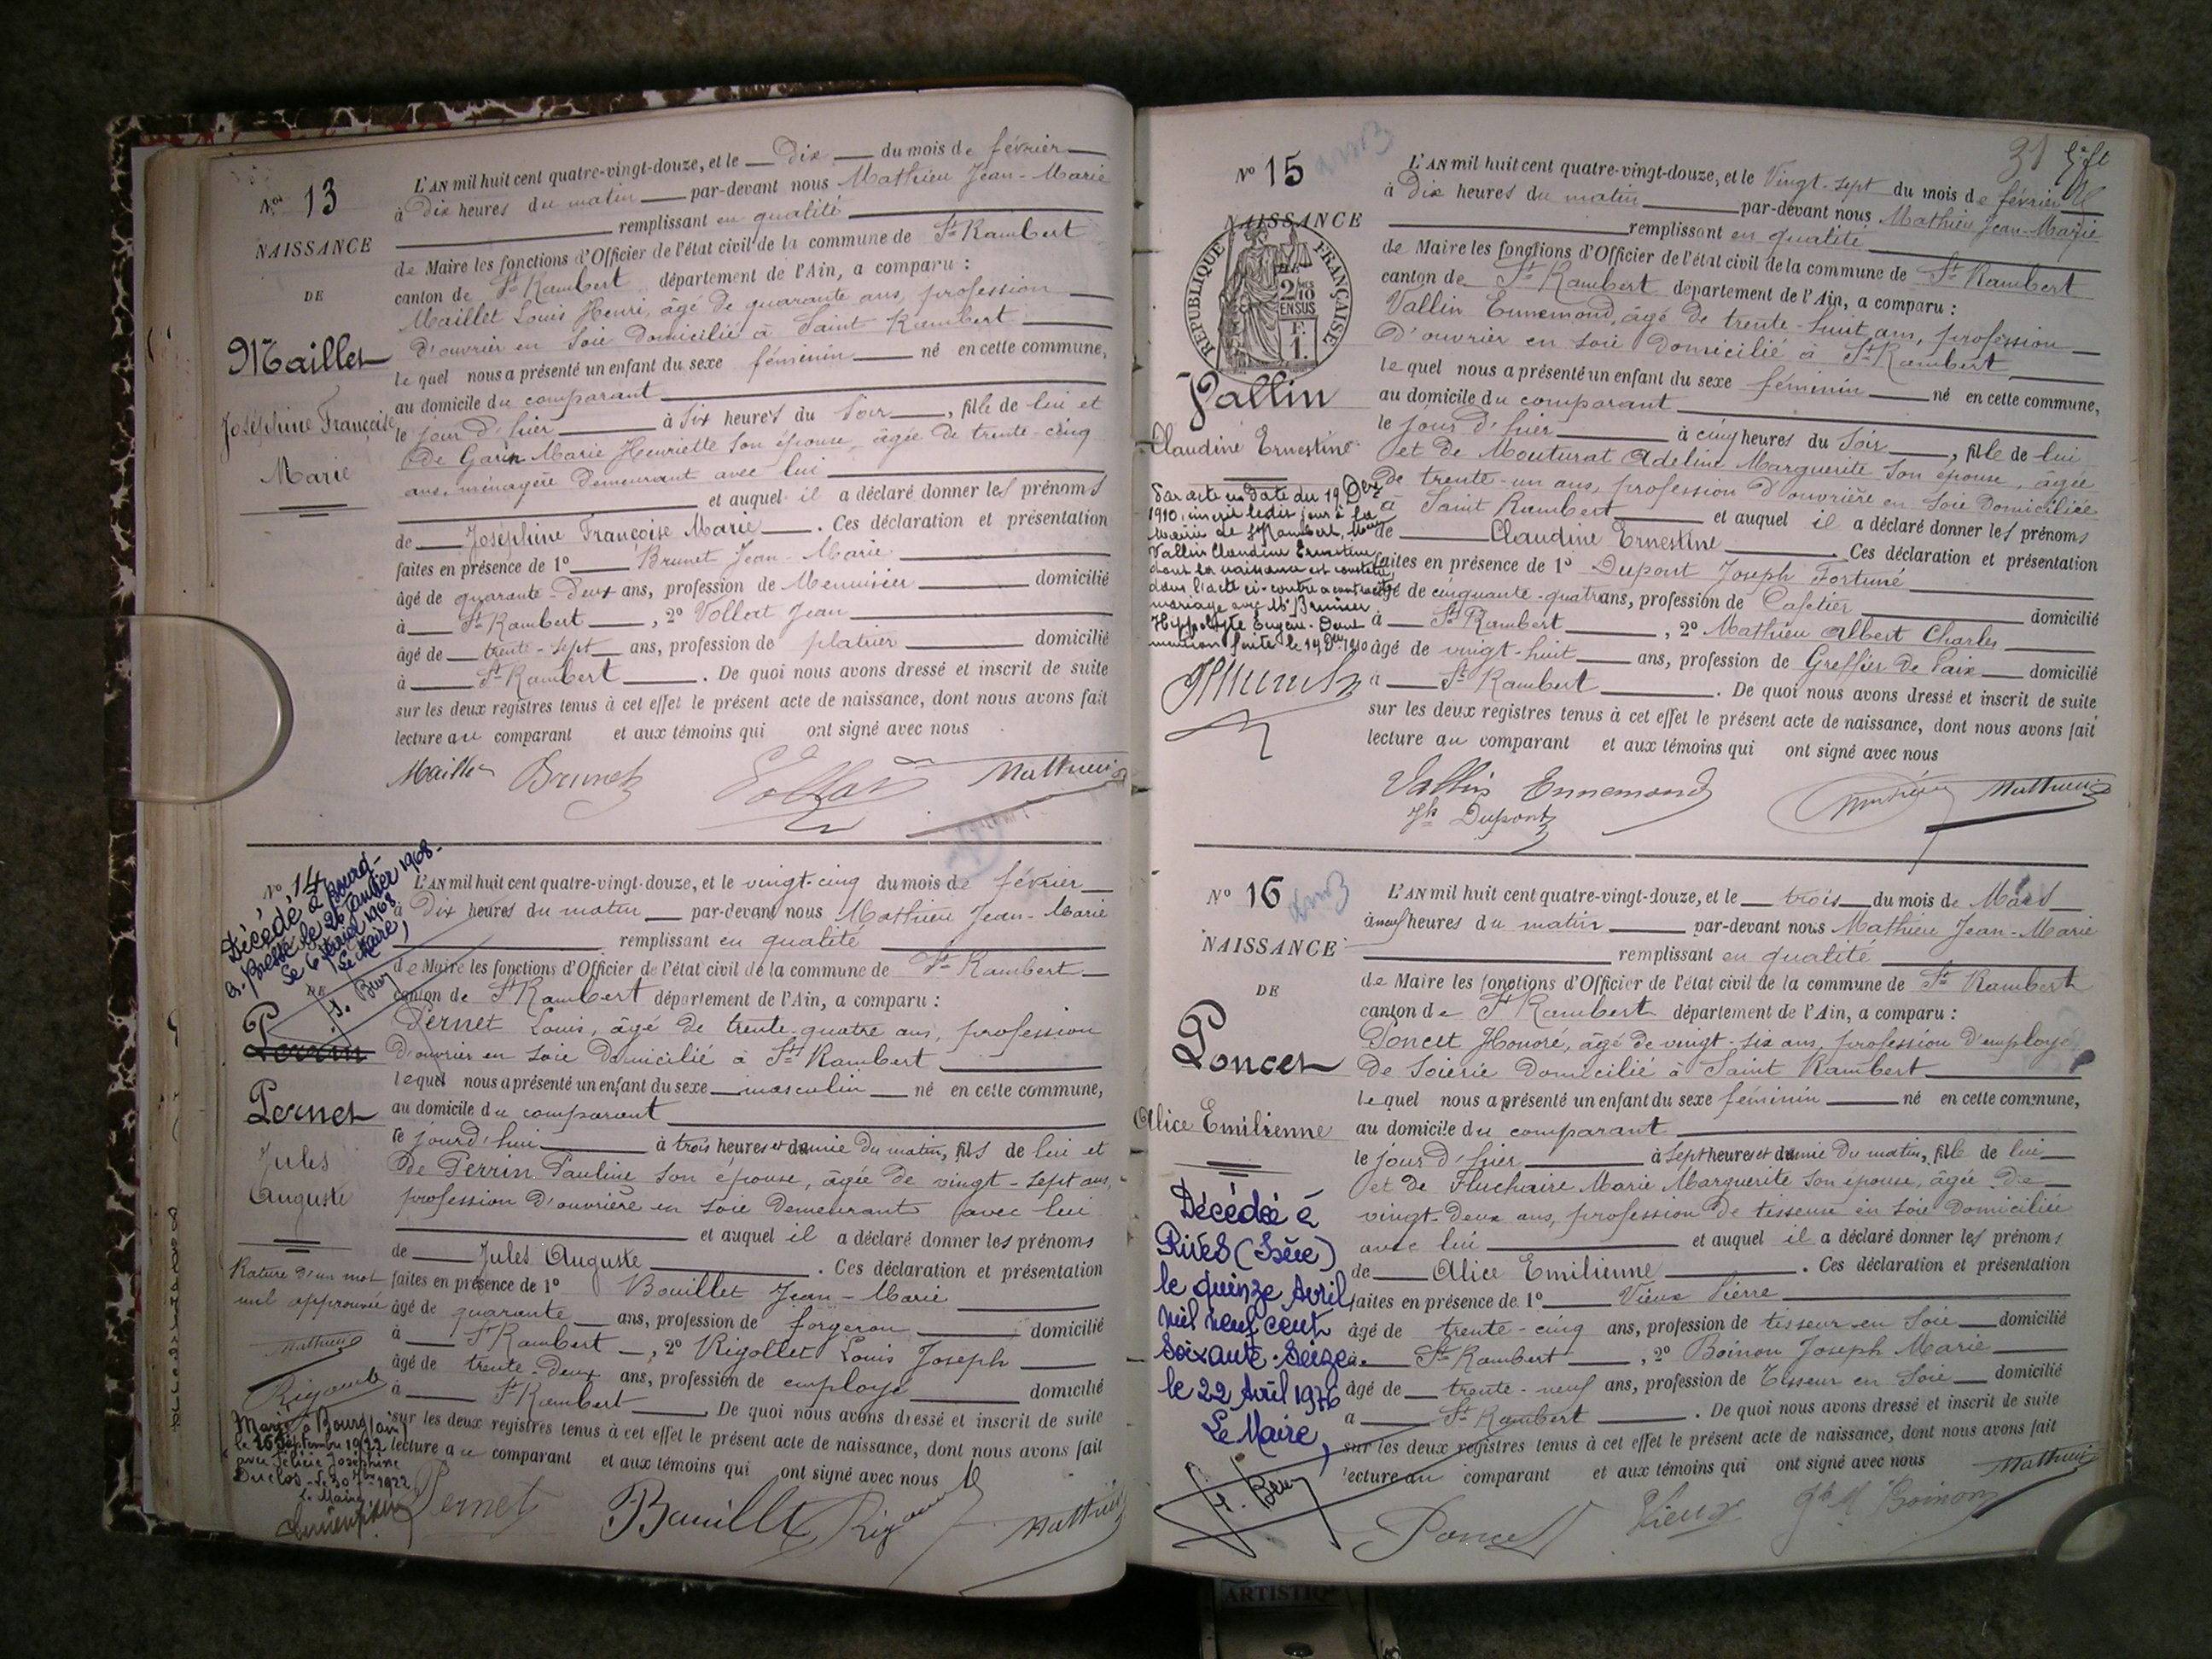 N° 13
NAISSANCE
DE
Maillet
Joséphine Française
Marie
L'AN mil huit cent quatre-vingt-douze, et le Dix du mois de février
à Dix heures du matin par-devant nous Mathieu Jean-Marie
remplissant en qualité
de Maire les fonctions d'Officier de l'état civil de la commune de St Rambert
canton de St Rambert département de l'Ain, a comparu :
Maillet Louis Henri, âgé de quarante ans, profession
d'ouvrier en soie domicilié à Saint Rambert
lequel nous a présenté un enfant du sexe féminin né en cette commune,
au domicile du comparant
le jour d'hier à six heures du soir, fille de lui et
de Garin Marie Henriette son épouse, âgée de trente-cinq
ans, ménagère demeurant avec lui
et auquel il a déclaré donner les prénoms
de Joséphine Françoise Marie. Ces déclaration et présentation
faites en présence de 1° Brunet Jean-Marie
âgé de quarante-deux ans, profession de Menuisier domicilié
à St Rambert, 2° Vollat Jean
âgé de trente-sept ans, profession de platrier domicilié
à St Rambert. De quoi nous avons dressé et inscrit de suite
sur les deux registres tenus à cet effet le présent acte de naissance, dont nous avons fait
lecture au comparant et aux témoins qui ont signé avec nous
Maillet Brunet Vollat Mathieu
N° 14
Décédé à Bourg-
en-Bresse le 26 janvier 1968.
Le 6 février 1968
Le Maire,
DE
Perrin
Pernet
Jules
Auguste
Rature d'un mot
nul approuvée
Mathieu
Marié à Bourg (Ain)
le 26 septembre 1922
avec Félicie Joséphine
Duclos - Le 30 7bre 1922
Le Maire
L'AN mil huit cent quatre-vingt-douze, et le vingt-cinq du mois de février
à Dix heures du matin par-devant nous Mathieu Jean-Marie
remplissant en qualité
de Maire les fonctions d'Officier de l'état civil de la commune de St Rambert
canton de St Rambert département de l'Ain, a comparu :
Pernet Louis, âgé de trente-quatre ans, profession
d'ouvrier en soie domicilié à St Rambert
lequel nous a présenté un enfant du sexe masculin né en cette commune,
au domicile du comparant
le jourd'hui à trois heures et demie du matin, fils de lui et
de Perrin Pauline son épouse, âgée de vingt-sept ans,
profession d'ouvrière en soie demeurant avec lui
et auquel il a déclaré donner les prénoms
de Jules Auguste. Ces déclaration et présentation
faites en présence de 1° Bouillet Jean-Marie
âgé de quarante ans, profession de forgeron domicilié
à St Rambert, 2° Rigollet Louis Joseph
âgé de trente-deux ans, profession de employé domicilié
à St Rambert De quoi nous avons dressé et inscrit de suite
sur les deux registres tenus à cet effet le présent acte de naissance, dont nous avons fait
lecture au comparant et aux témoins qui ont signé avec nous
Pernet Bouillet Mathieu
31
N° 15
NAISSANCE
DE
RÉPUBLIQUE FRANÇAISE
2/10
EN SUS
F.
1.
Vallin
Claudine Ernestine
Par acte en date du 19 Dbre
1910, inscrit ledit jour à la
Mairie de St Rambert, Melle
Vallin Claudine Ernestine
dont la naissance est constatée
dans l'acte ci-contre a contracté
mariage avec Mr Brunier
Hippolyte Eugène. Dont
mention faite le 19 Dbre 1910
L'AN mil huit cent quatre-vingt-douze, et le Vingt-sept du mois de février
à Dix heures du matin par-devant nous Mathieu Jean-Marie
remplissant en qualité
de Maire les fonctions d'Officier de l'état civil de la commune de St Rambert
canton de St Rambert département de l'Ain, a comparu :
Vallin Ennemond, âgé de trente-huit ans, profession
D'ouvrier en soie domicilié à St Rambert
lequel nous a présenté un enfant du sexe féminin né en cette commune,
au domicile du comparant
le jour d'hier à cinq heures du soir, fille de lui
et de Mouturat Adeline Marguerite son épouse, âgée
de trente-un ans, profession d'ouvrière en soie domiciliée
à Saint Rambert et auquel il a déclaré donner les prénoms
de Claudine Ernestine. Ces déclaration et présentation
faites en présence de 1° Dupont Joseph Fortuné
âgé de cinquante-quatre ans, profession de Cafetier domicilié
à St Rambert, 2° Mathieu Albert Charles
âgé de vingt-huit ans, profession de Greffier de Paix domicilié
à St Rambert. De quoi nous avons dressé et inscrit de suite
sur les deux registres tenus à cet effet le présent acte de naissance, dont nous avons fait
lecture au comparant et aux témoins qui ont signé avec nous
Vallin Ennemond Mathieu Mathieu
Jh Dupont
N° 16
NAISSANCE
DE
Poncet
Alice Emilienne
Décédée à
Rives (Isère)
le quinze Avril
mil neuf cent
soixante-seize.
le 22 Avril 1976
Le Maire,
L'AN mil huit cent quatre-vingt-douze, et le trois du mois de Mars
à neuf heures du matin par-devant nous Mathieu Jean-Marie
remplissant en qualité
de Maire les fonctions d'Officier de l'état civil de la commune de St Rambert
canton de St Rambert département de l'Ain, a comparu :
Poncet Honoré, âgé de vingt-six ans, profession d'employé
de soierie domicilié à Saint Rambert
lequel nous a présenté un enfant du sexe féminin né en cette commune,
au domicile du comparant
le jour d'hier à sept heures et demie du matin, fille de lui
et de Fluchaire Marie Marguerite son épouse, âgée de
vingt-deux ans, profession de tisseuse en soie domiciliée
avec lui et auquel il a déclaré donner les prénoms
de Alice Emilienne. Ces déclaration et présentation
faites en présence de 1° Vieux Pierre
âgé de trente-cinq ans, profession de tisseur en soie domicilié
à St Rambert, 2° Boinon Joseph Marie
âgé de trente-neuf ans, profession de Tisseur en soie domicilié
a St Rambert. De quoi nous avons dressé et inscrit de suite
sur les deux registres tenus à cet effet le présent acte de naissance, dont nous avons fait
lecture au comparant et aux témoins qui ont signé avec nous
Poncet Vieux Jh M Boinon Mathieu
ARTISTIQ